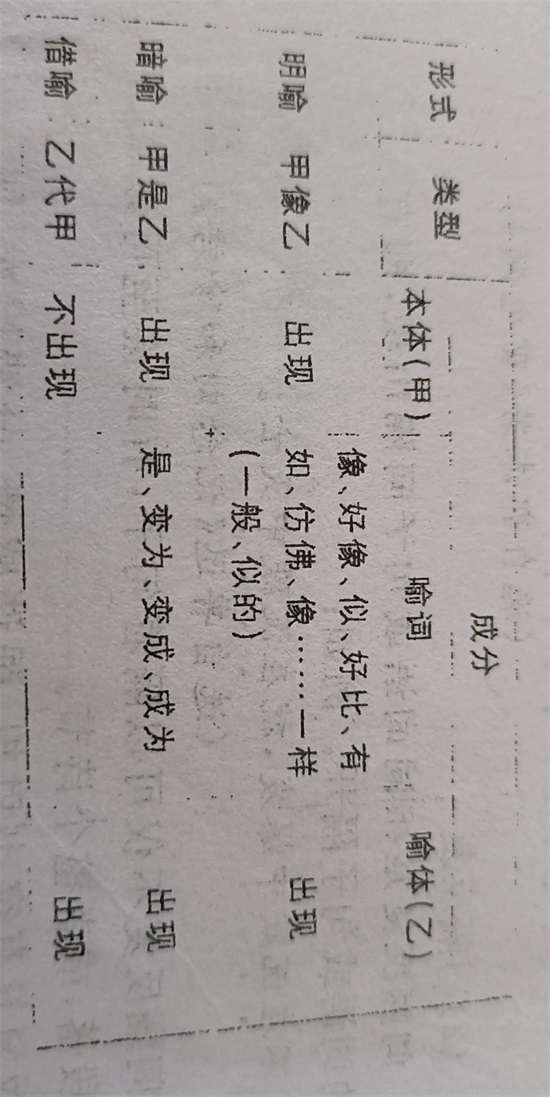 成分
形式 类型 本体(甲) 喻词 喻体(乙)
像、好像、似、好比、有
明喻 甲像乙 出现 如、仿佛、像……一样 出现
(一般、似的)
暗喻 甲是乙 出现 是、变为、变成、成为 出现
借喻 乙代甲 不出现 出现